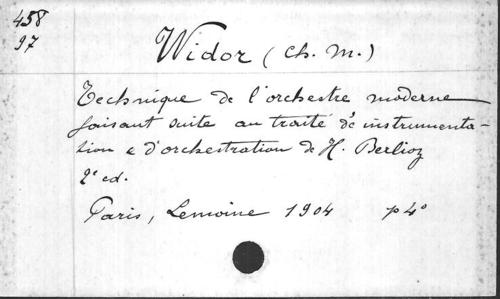 458
97
Widor (Ch. M.)
Technique de l'orchestre moderne
faisant suite au traité d'instrumenta-
tion & d'orchestration de H. Berlioz
2e ed.
Paris, Lemoine 1904 p4°